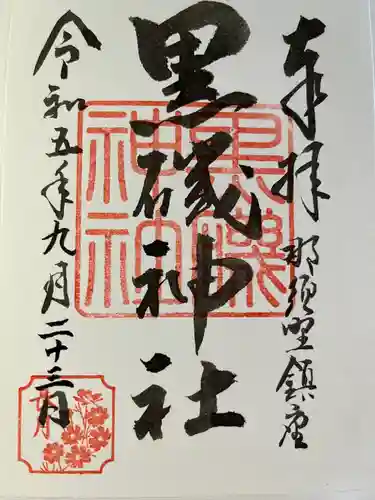 奉拝
那須野鎮座
黒磯神社
黒磯神社
令和五年九月二十三日
九月